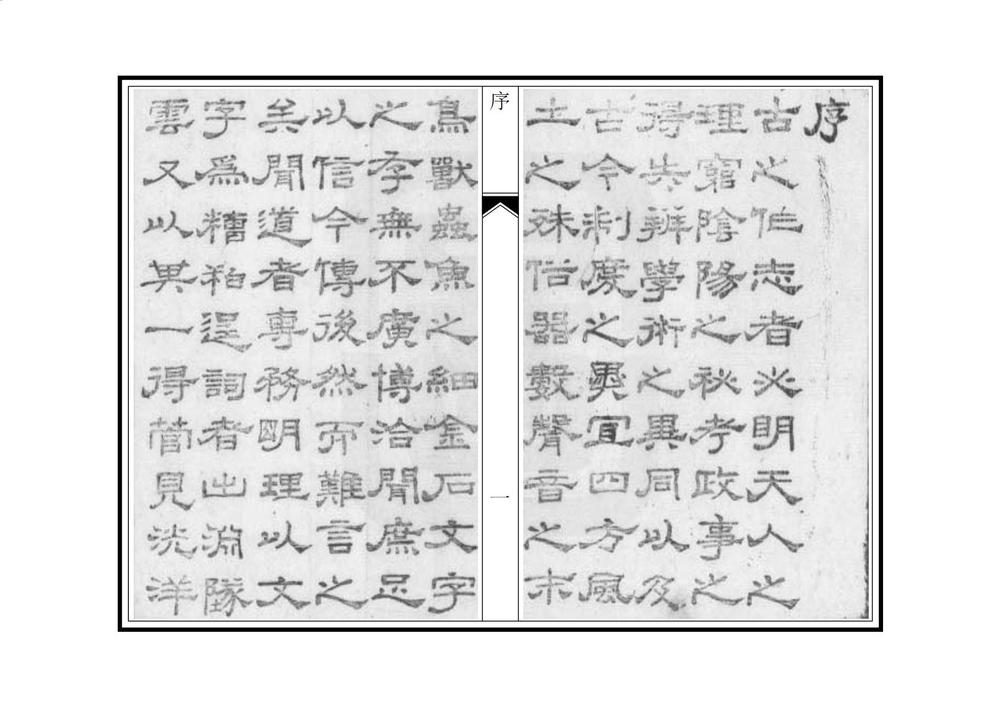 序
古之作志者必明天人之
理窮陰陽之秘考政事之
得失辨學術之異同以及
古今制度之異宜四方風
土之殊俗器數聲音之末
序
一
鳥獸蟲魚之細金石文字
之存無不廣博洽聞庶足
以信今傳後然而難言之
矣聞道者專務明理以文
字爲糟粕逞詞者出淵墜
雲又以其一得菅見洸洋